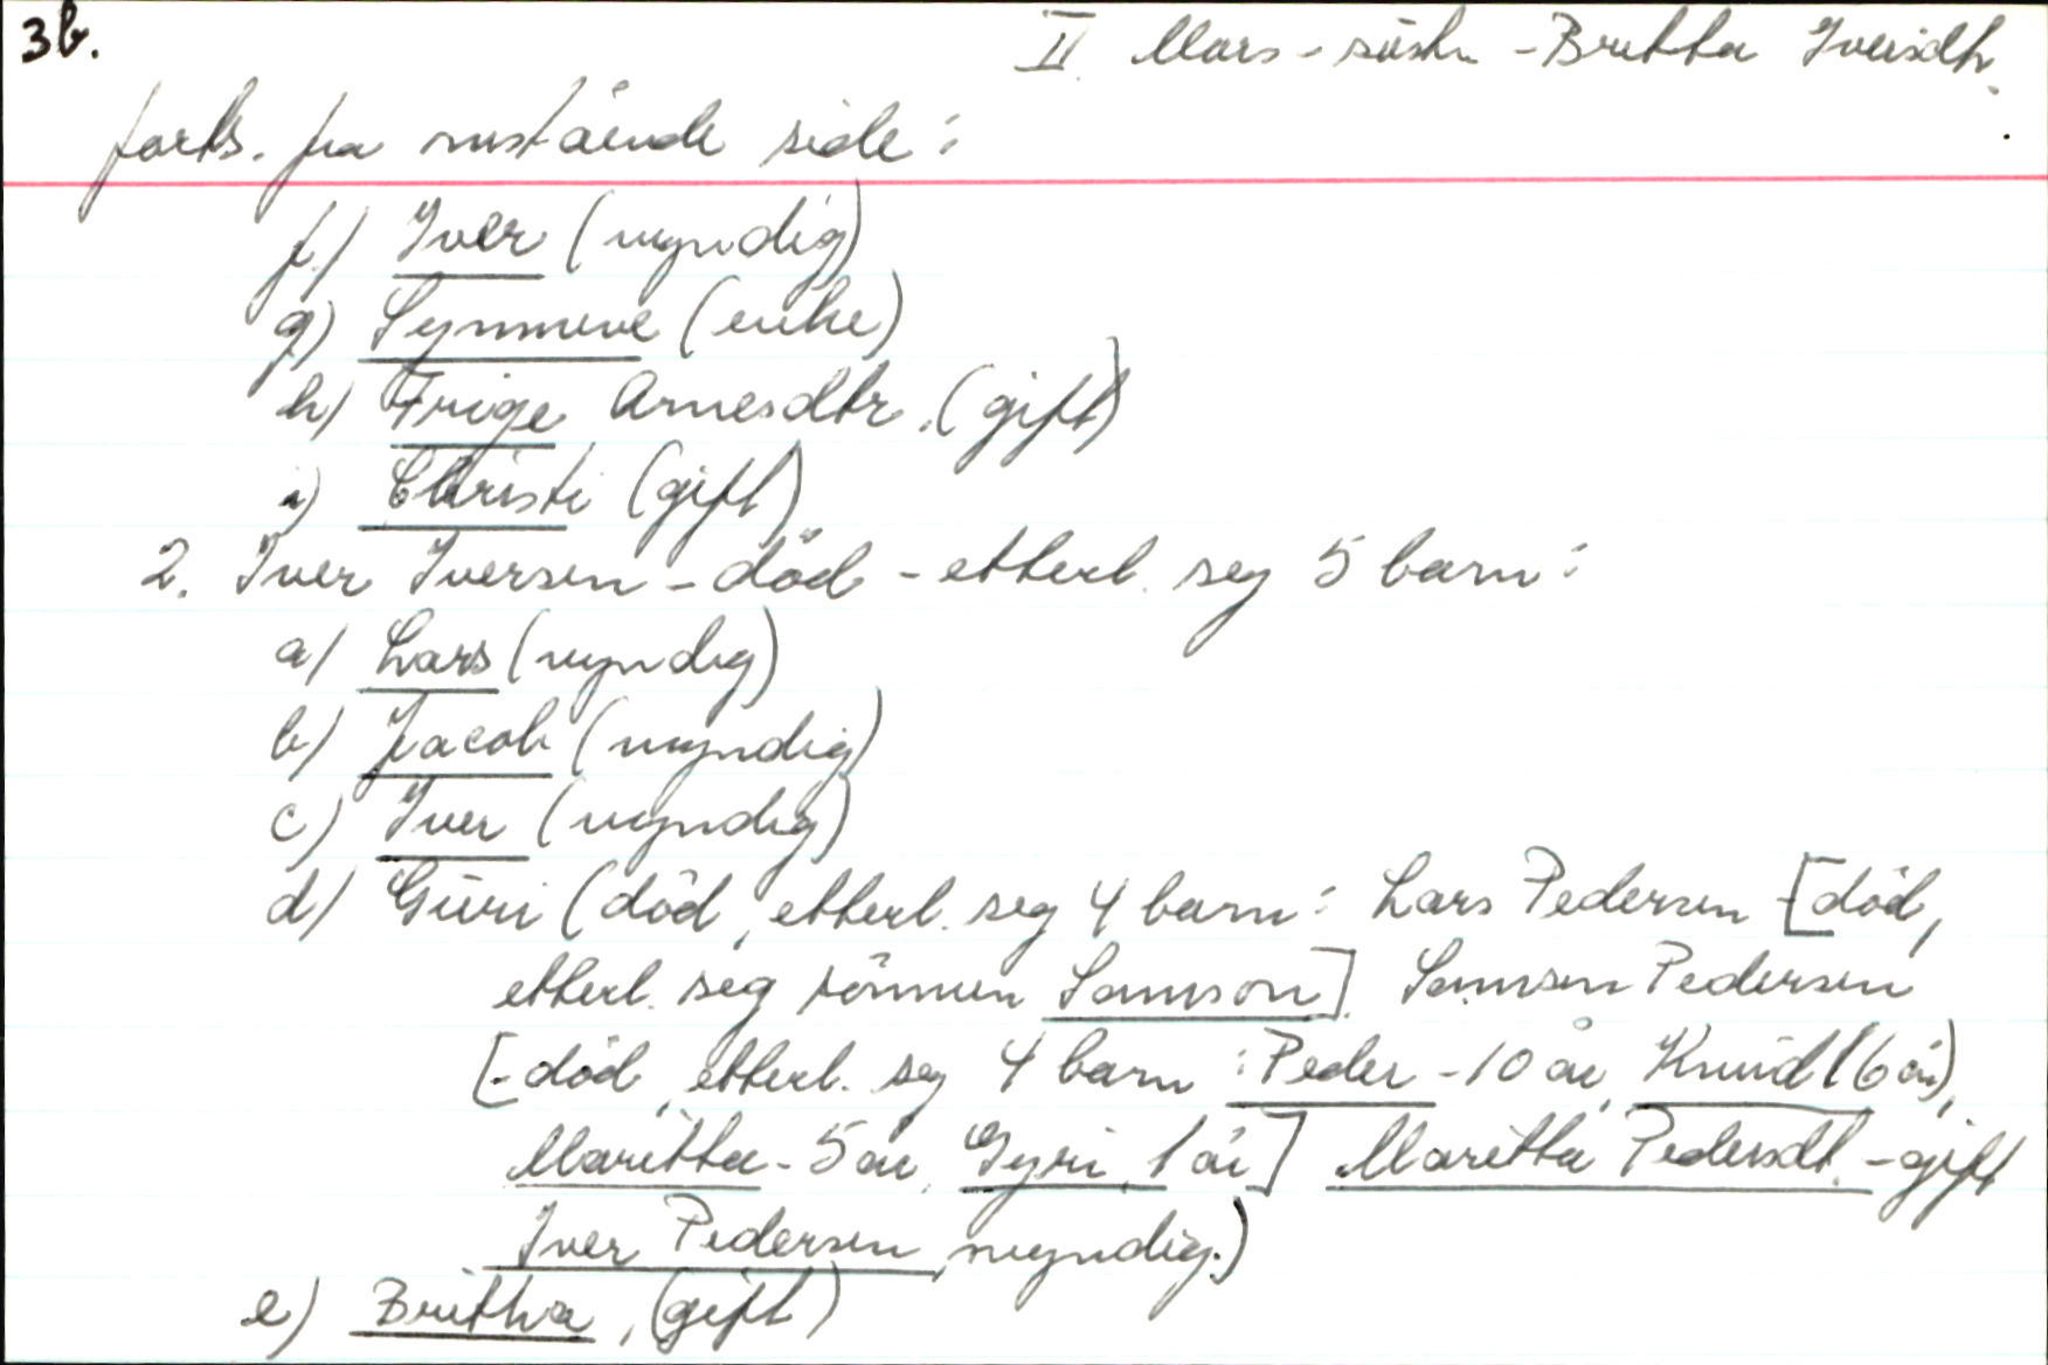 3b.
II Mors-søstr - Britta Iversdtr.
forts. fra motstående side:
f) Iver (myndig)
g) Synneve (enke)
h) Frige Arnesdtr. (gift)
i) Christi (gift)
2. Iver Iversen - död - etterl. seg 5 barn:
a) Lars (myndig)
b) Jacob (myndig)
c) Iver (myndig)
d) Guri (död, etterl. seg 4 barn: Lars Pedersen [död,
etterl. seg sönnen Samson]. Samson Pedersen
[-död, etterl. seg 4 barn: Peder - 10 år, Knud (6 år),
Maritta - 5 år, Gyri, 1 år] Maritta Pedersdt. - gift
Iver Pedersen, myndig.)
e) Britha, (gift)